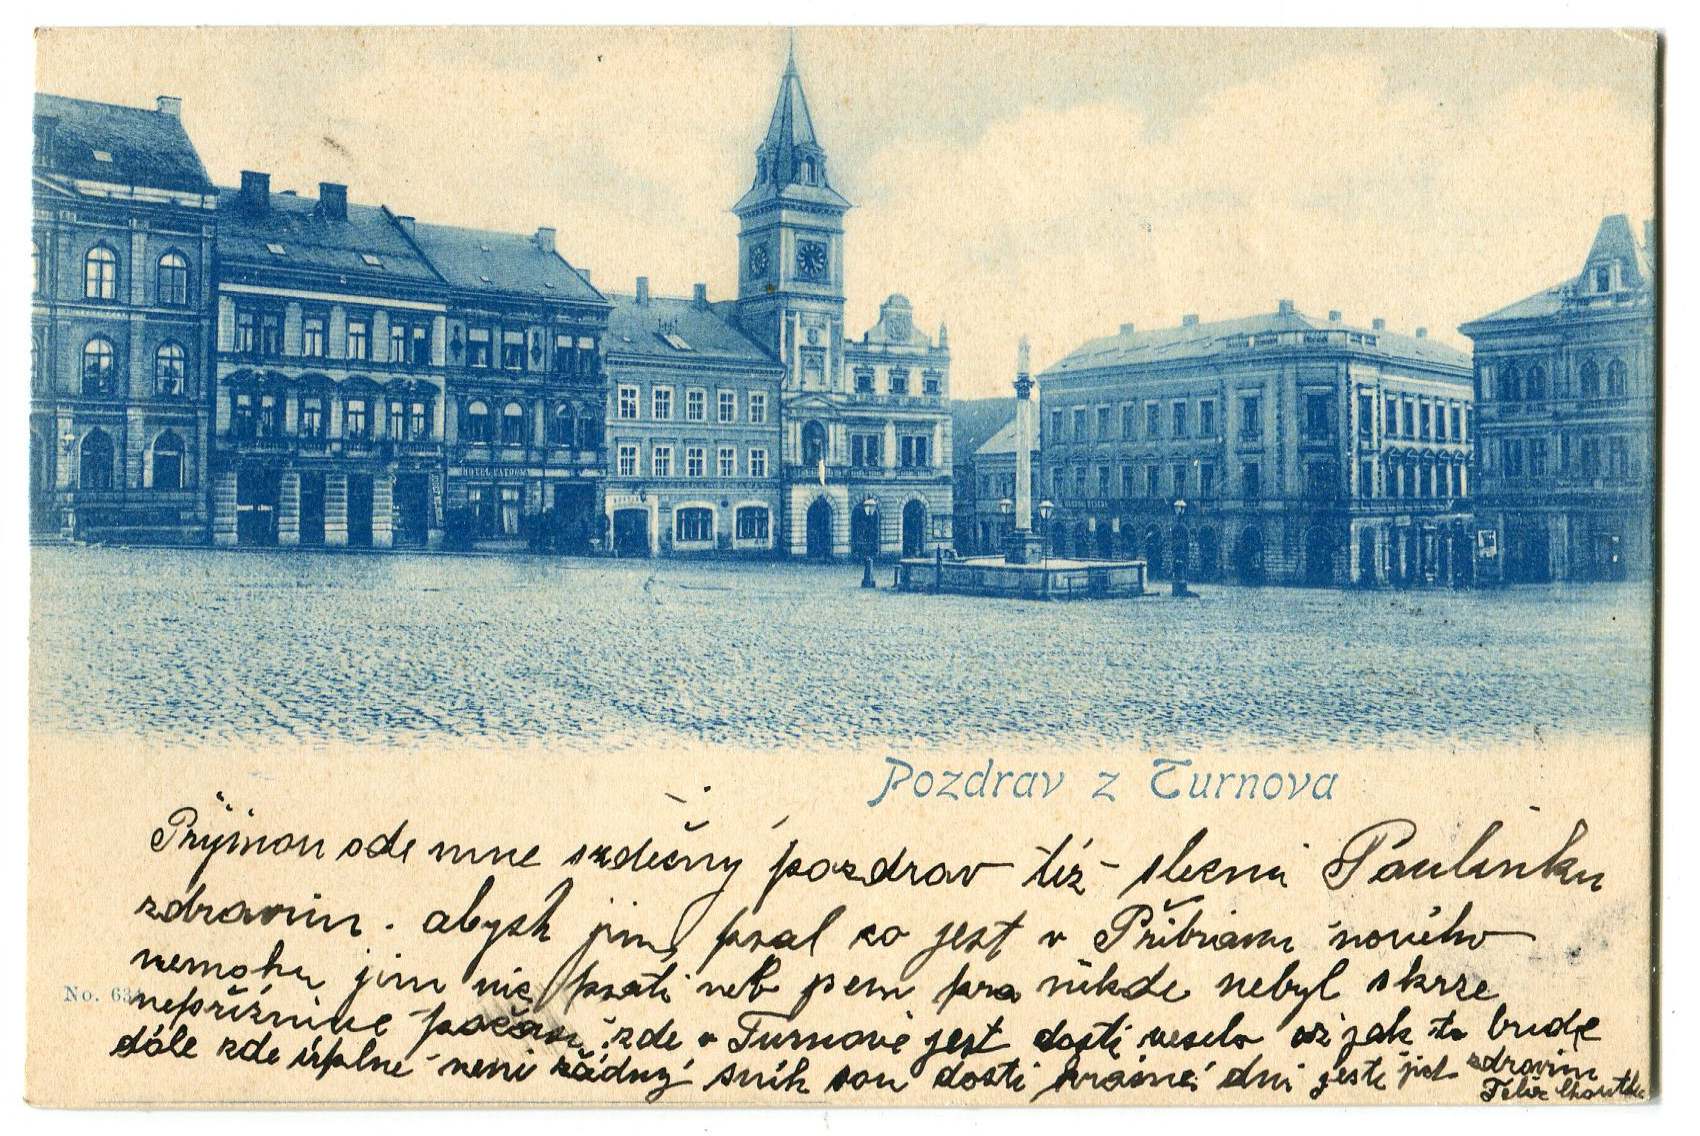 HOTEL
Pozdrav z Turnova
Přijmou ode mne srdečný pozdrav též slečni Paulinku
zdravim. abysh jim psal co jest v Přibrami nového
nemohu jim nic psati neb sem pra nikde nebyl skrze
No. 63
nepřížnive počasi zde v Turnově jest dosti veselo až jak to bude
dále zde úplně neni žádný sníh sou dosti krásné dni jestě jich zdravim